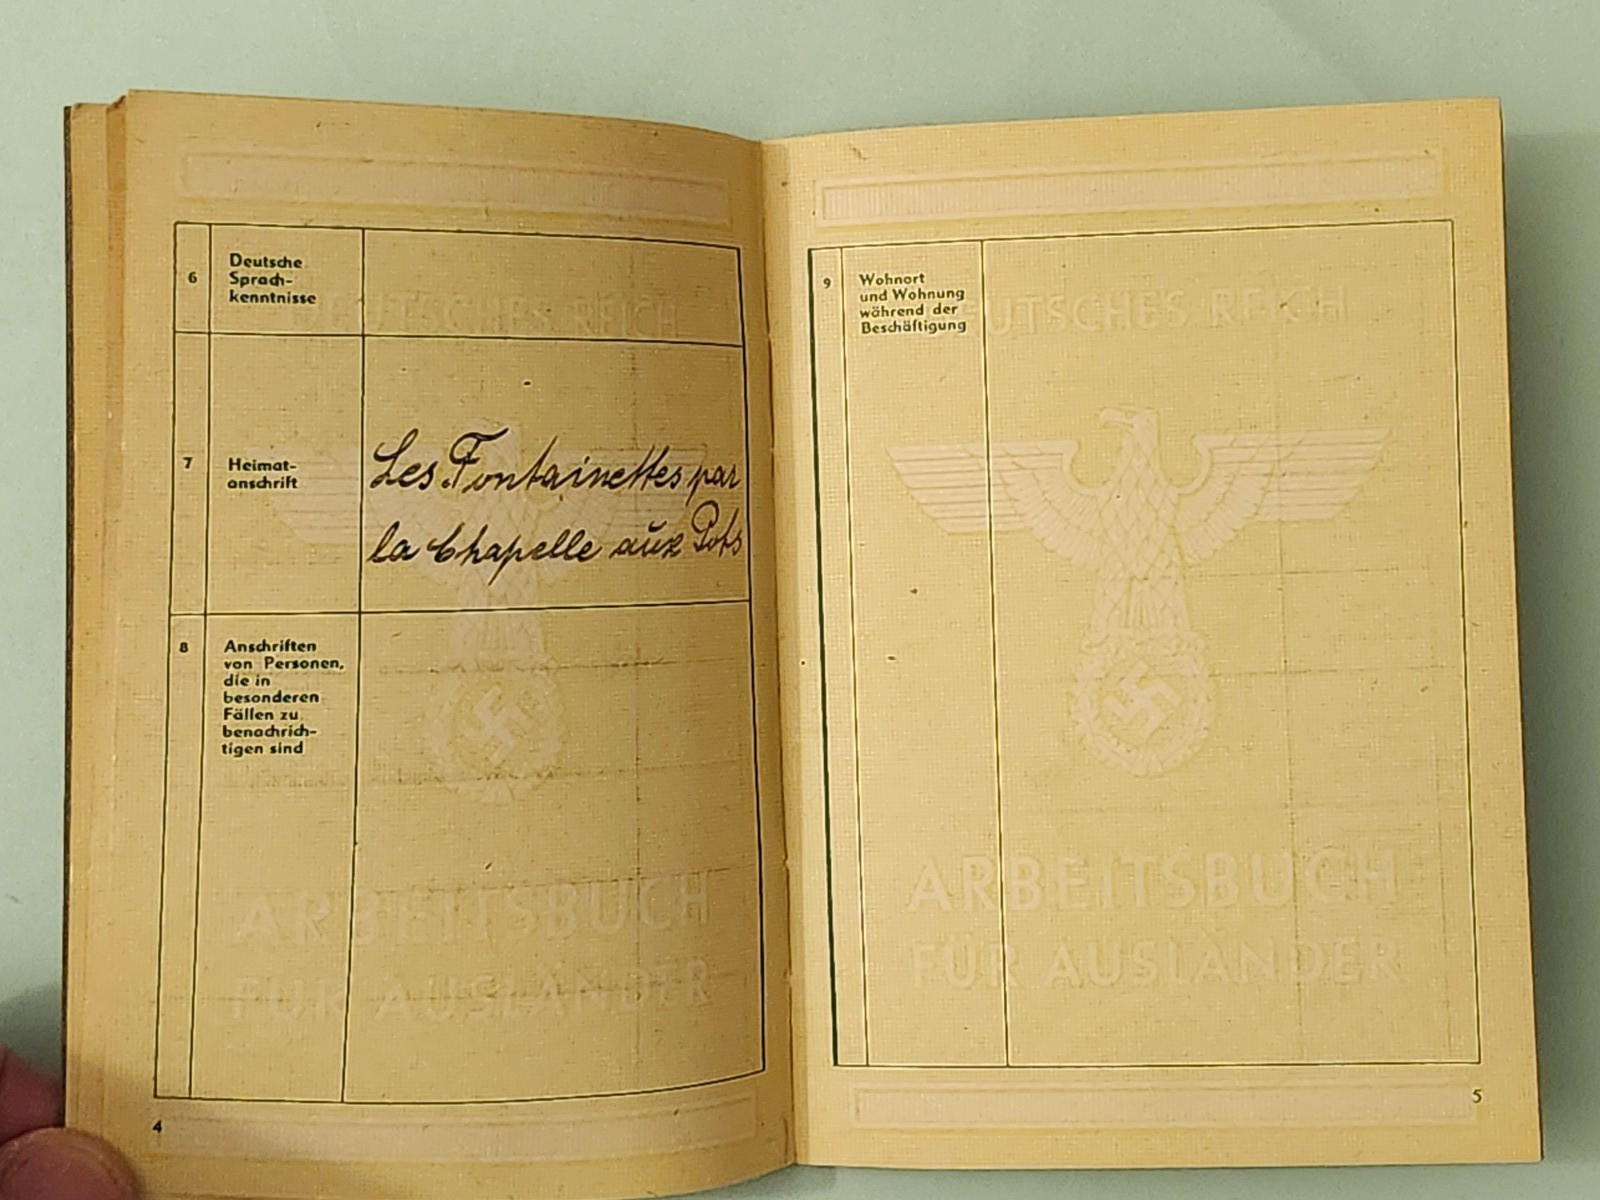 DEUTSCHES REICH
6
Deutsche
Sprach-
kenntnisse
7
Heimat-
anschrift
Les Fontainettes par
la Chapelle aux Pots
8
Anschriften
von Personen,
die in
besonderen
Fällen zu
benachrich-
tigen sind
ARBEITSBUCH
FÜR AUSLÄNDER
4
DEUTSCHES REICH
9
Wohnort
und Wohnung
während der
Beschäftigung
ARBEITSBUCH
FÜR AUSLÄNDER
5